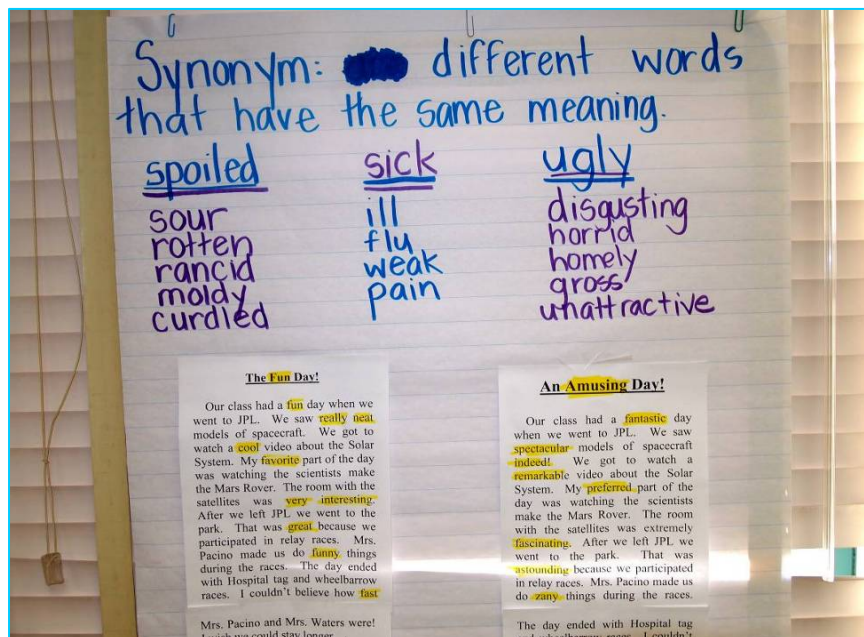 Synonym: different words
that have the same meaning.
spoiled
sour
rotten
rancid
moldy
curdled
sick
ill
flu
weak
pain
ugly
disgusting
horrid
homely
gross
unattractive
The Fun Day!
Our class had a fun day when we
went to JPL. We saw really neat
models of spacecraft. We got to
watch a cool video about the Solar
System. My favorite part of the day
was watching the scientists make
the Mars Rover. The room with the
satellites was very interesting.
After we left JPL we went to the
park. That was great because we
participated in relay races. Mrs.
Pacino made us do funny things
during the races. The day ended
with Hospital tag and wheelbarrow
races. I couldn't believe how fast
Mrs. Pacino and Mrs. Waters were!
I wish we could stay longer.
An Amusing Day!
Our class had a fantastic day
when we went to JPL. We saw
spectacular models of spacecraft
indeed! We got to watch a
remarkable video about the Solar
System. My preferred part of the
day was watching the scientists
make the Mars Rover. The room
with the satellites was extremely
fascinating. After we left JPL we
went to the park. That was
astounding because we participated
in relay races. Mrs. Pacino made us
do zany things during the races.
The day ended with Hospital tag
and wheelbarrow races. I couldn't